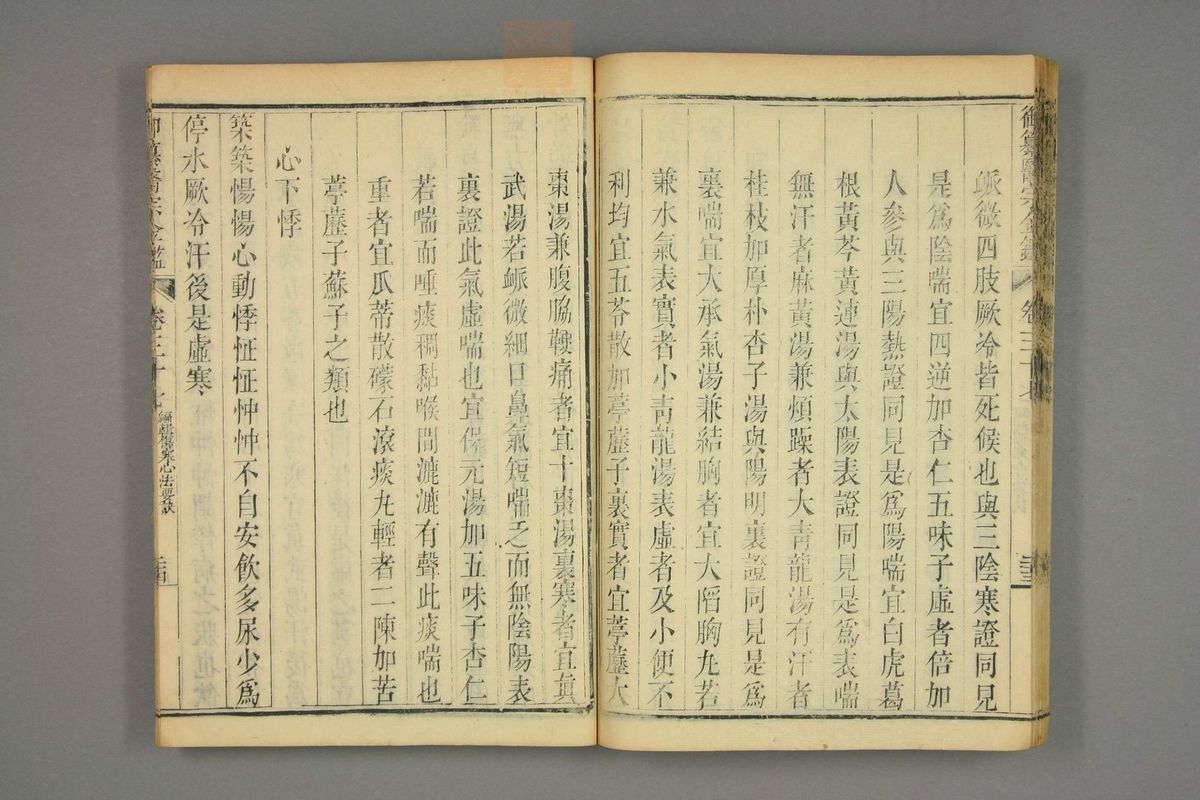 御纂醫宗金鑑 卷三十七 三十三
脈微四肢厥冷皆死候也與三陰寒證同見
是爲陰喘宜四逆加杏仁五味子虛者倍加
人參與三陽熱證同見是爲陽喘宜白虎葛
根黃芩黃連湯與太陽表證同見是爲表喘
無汗者麻黃湯兼煩躁者大靑龍湯有汗者
桂枝加厚朴杏子湯與陽明裏證同見是爲
裏喘宜大承氣湯兼結胸者宜大陷胸丸若
兼水氣表實者小靑龍湯表虛者及小便不
利均宜五苓散加葶藶子裏實者宜葶藶大
棗湯兼腹脇鞕痛者宜十棗湯裏寒者宜眞
武湯若脈微細口鼻氣短喘乏而無陰陽表
裏證此氣虛喘也宜保元湯加五味子杏仁
若喘而唾痰稠黏喉間漉漉有聲此痰喘也
重者宜瓜蒂散礞石滾痰丸輕者二陳加苦
葶藶子蘇子之類也
心下悸
築築惕惕心動悸怔怔忡忡不自安飲多尿少爲
停水厥冷汗後是虛寒
御纂醫宗金鑑 卷三十七 編輯傷寒心法要訣 三十四